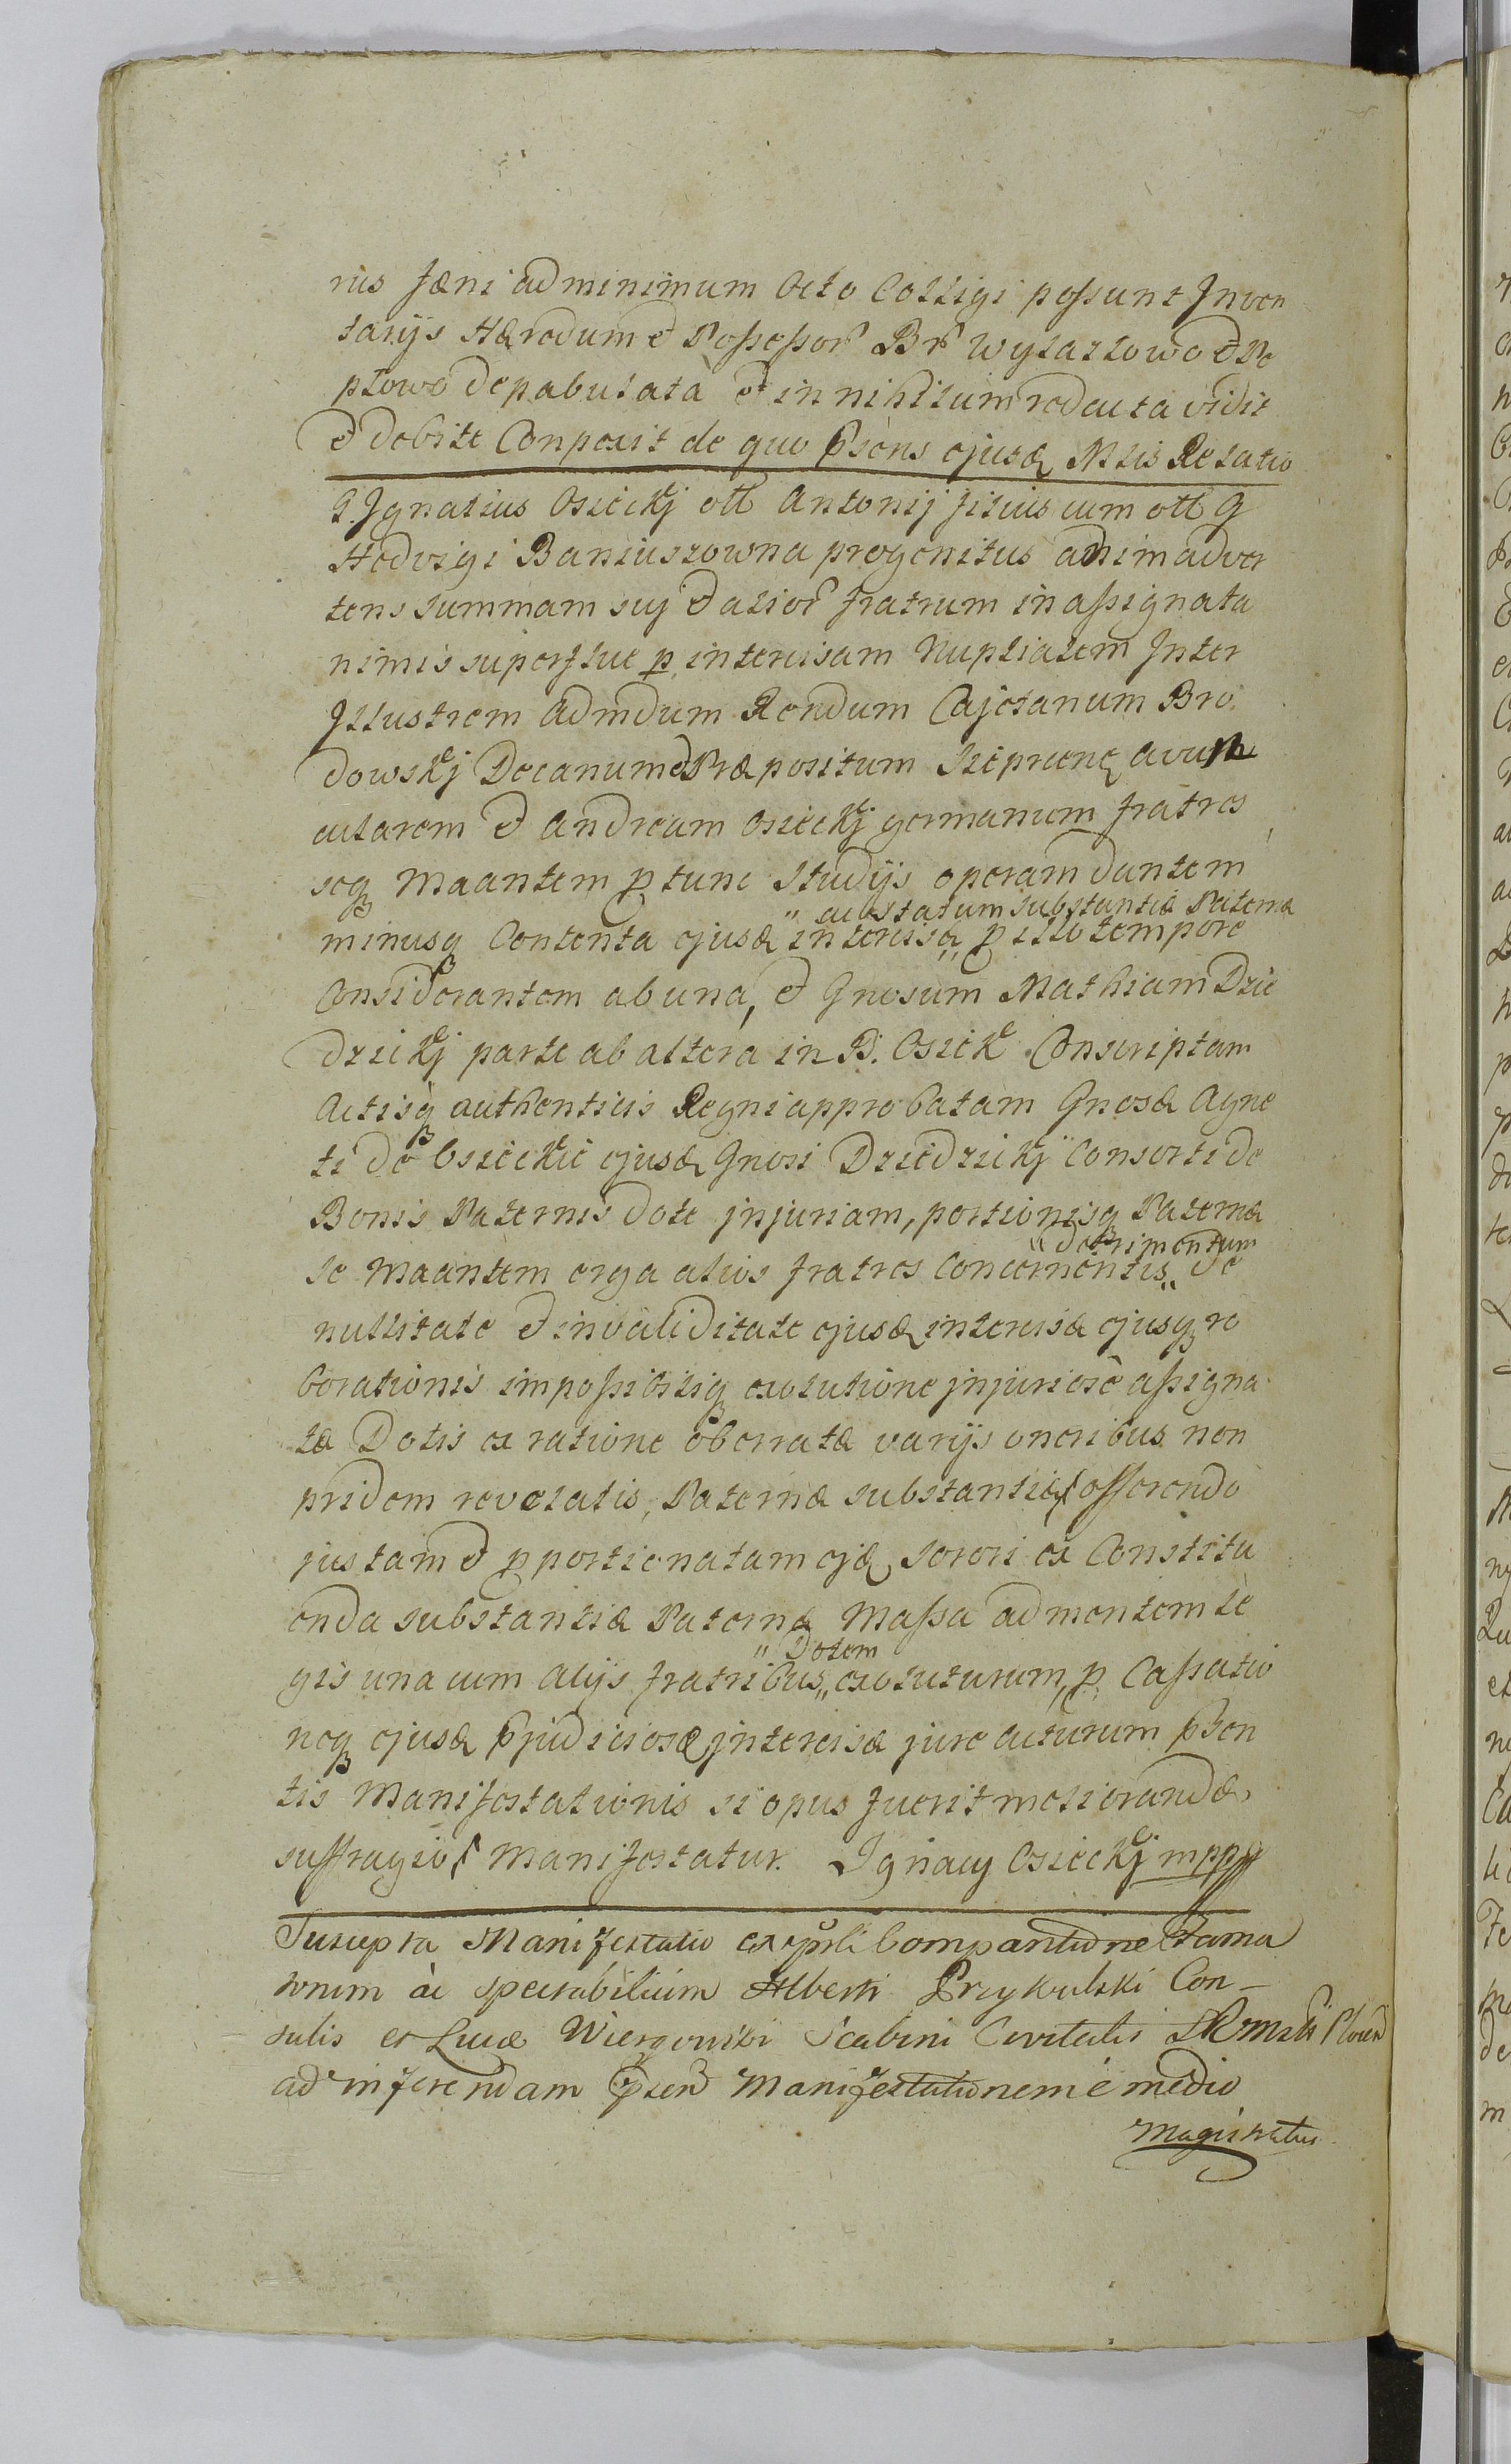 rus fæni ad minimum Octo Colligi possunt Inven
tarijs Hæredum et Possessor Br Wylazlowo et Po
plowo depabulata et in nihilum redacta vidit
et debite Conpexit de quo psens ejusd Mlis Relatio
G. Ignatius Osieckj olt Antonij filius cum olt G
Hedvigi Baniuszowna progenitus animadver
tens summam suj et alior fratrum in assignata
nimis superflue p intercisam Nuptialem Inter
Illustrem Admdum Rendum Cajetanum Bro
dowskj Decanum et Præpositum Szeprcens avun
cularem et Andream Osieckj germanum fratres
seq Maantem p tunc Studijs operam dantem
" ac statum substantiæ Paternæ
minusq Contenta ejusd intercisæ " p illo tempore
Considerantem ab una, et Gnosum Mathiam Dzie
dzickj parte ab altera in B. Osiek Conscriptam
Actisq authenticis Regni approbatam Gnosæ Agne
ti de Osieckie ejusd Gnosi Dziedzickj Consorti de
Bonis Paternis dote injuriam, portionisq Paternæ
" detrimentum
se Maantem erga alios fratres Concernentis " de
nullitate et invaliditate ejusd intercisæ ejusq ro
borationis impossibiliq exolutione injuriose assigna
tæ Dotis ex ratione oberratæ varijs oneribus non
pridem revelatis, Paternæ substantiæ, offerendo
justam et pportionatam ejd Sorori ex Constitu
enda substantiæ Paternæ Massa ad mentem le
" Dotem
gis una cum Alijs fratribus " exoluturum, p Cassatio
neq ejusd pjudiciosæ intercisæ jure acturum psen
tis Manifestationis si opus fuerit meliorandæ
suffragio Manifestatur. Ignacy Osieckj mpp
Suscepta Manifestatio ex psli Comparitione Fama
torum ac spectabilium Alberti Przykulski Con-
sulis et Lucæ Wiergowski Scabini Civitatis
ad inferendam psen Manifestationem è medio
Magistratus